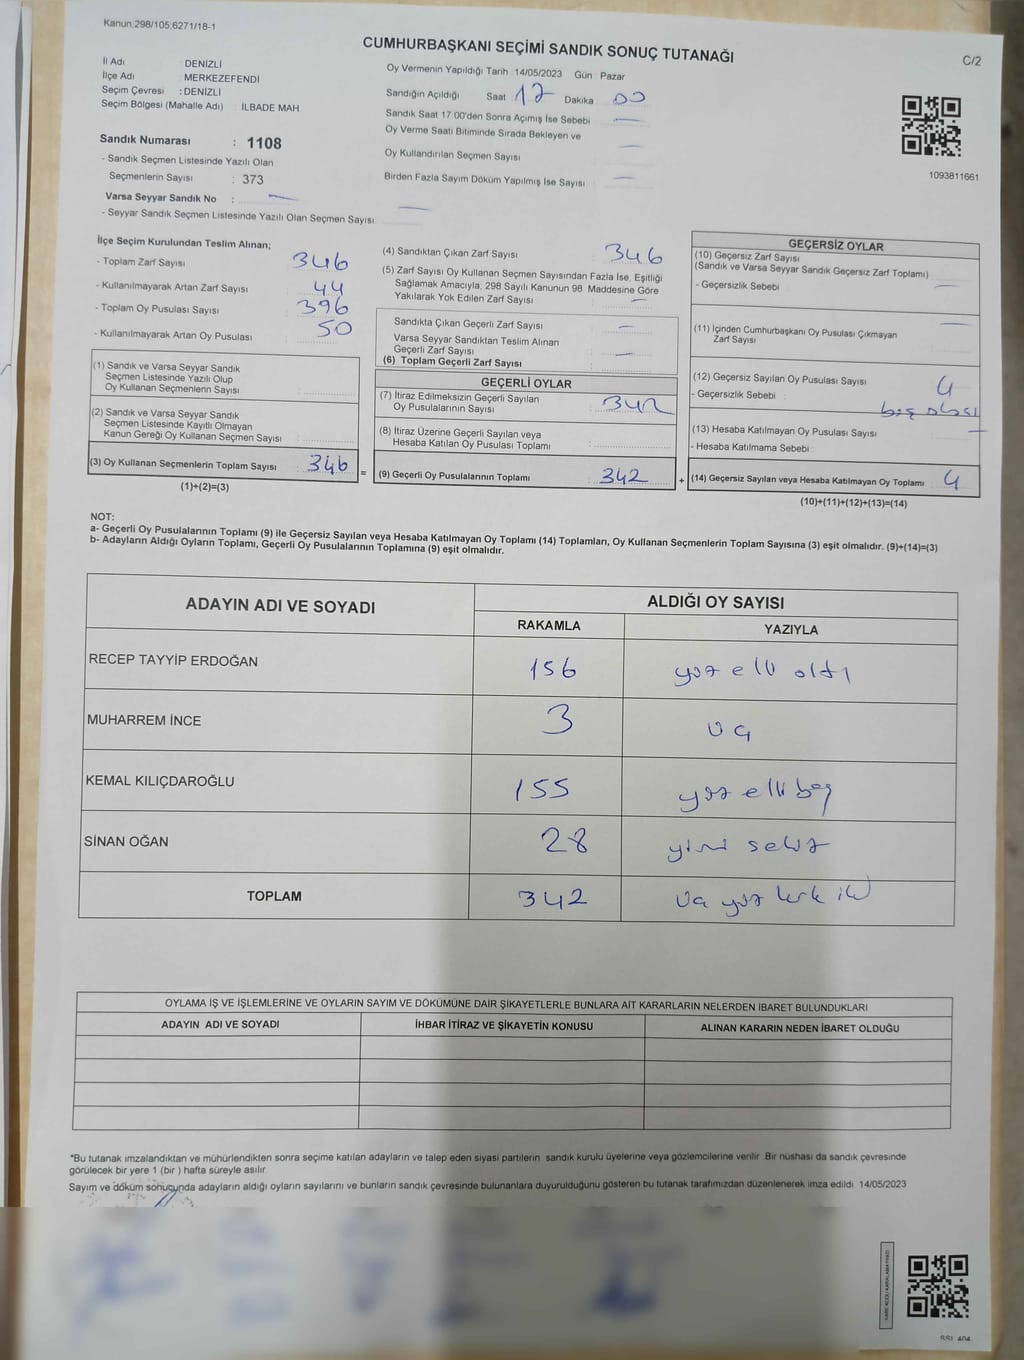 Kanun,298/105,6271/18-1
CUMHURBAŞKANI SEÇİMİ SANDIK SONUÇ TUTANAĞI
C/2
İl Adı DENİZLİ
İlçe Adı MERKEZEFENDİ
Seçim Çevresi : DENİZLİ
Seçim Bölgesi (Mahalle Adı) : İLBADE MAH
Sandık Numarası : 1108
- Sandık Seçmen Listesinde Yazılı Olan
Seçmenlerin Sayısı : 373
Varsa Seyyar Sandık No :
- Seyyar Sandık Seçmen Listesinde Yazılı Olan Seçmen Sayısı
Oy Vermenin Yapıldığı Tarih 14/05/2023 Gün Pazar
Sandığın Açıldığı Saat 17 Dakika 00
Sandık Saat 17:00'den Sonra Açımış İse Sebebi
Oy Verme Saati Bitiminde Sırada Bekleyen ve
Oy Kullandırılan Seçmen Sayısı
Birden Fazla Sayım Döküm Yapılmış İse Sayısı
1093811661
İlçe Seçim Kurulundan Teslim Alınan;
- Toplam Zarf Sayısı 346
- Kullanılmayarak Artan Zarf Sayısı 44
- Toplam Oy Pusulası Sayısı 396
- Kullanılmayarak Artan Oy Pusulası 50
(1) Sandık ve Varsa Seyyar Sandık
Seçmen Listesinde Yazılı Olup
Oy Kullanan Seçmenlerin Sayısı
(2) Sandık ve Varsa Seyyar Sandık
Seçmen Listesinde Kayıtlı Olmayan
Kanun Gereği Oy Kullanan Seçmen Sayısı
(3) Oy Kullanan Seçmenlerin Toplam Sayısı 346 =
(1)+(2)=(3)
(4) Sandıktan Çıkan Zarf Sayısı 346
(5) Zarf Sayısı Oy Kullanan Seçmen Sayısından Fazla İse, Eşitliği
Sağlamak Amacıyla, 298 Sayılı Kanunun 98. Maddesine Göre
Yakılarak Yok Edilen Zarf Sayısı
Sandıkta Çıkan Geçerli Zarf Sayısı
Varsa Seyyar Sandıktan Teslim Alınan
Geçerli Zarf Sayısı
(6) Toplam Geçerli Zarf Sayısı
GEÇERLİ OYLAR
(7) İtiraz Edilmeksizin Geçerli Sayılan
Oy Pusulalarının Sayısı 342
(8) İtiraz Üzerine Geçerli Sayılan veya
Hesaba Katılan Oy Pusulası Toplamı
(9) Geçerli Oy Pusulalarının Toplamı 342 +
GEÇERSİZ OYLAR
(10) Geçersiz Zarf Sayısı
(Sandık ve Varsa Seyyar Sandık Geçersiz Zarf Toplamı)
- Geçersizlik Sebebi :
(11) İçinden Cumhurbaşkanı Oy Pusulası Çıkmayan
Zarf Sayısı
(12) Geçersiz Sayılan Oy Pusulası Sayısı 4
- Geçersizlik Sebebi : boş olası
(13) Hesaba Katılmayan Oy Pusulası Sayısı
- Hesaba Katılmama Sebebi
(14) Geçersiz Sayılan veya Hesaba Katılmayan Oy Toplamı 4
(10)+(11)+(12)+(13)=(14)
NOT:
a- Geçerli Oy Pusulalarının Toplamı (9) ile Geçersiz Sayılan veya Hesaba Katılmayan Oy Toplamı (14) Toplamları, Oy Kullanan Seçmenlerin Toplam Sayısına (3) eşit olmalıdır. (9)+(14)=(3)
b- Adayların Aldığı Oyların Toplamı, Geçerli Oy Pusulalarının Toplamına (9) eşit olmalıdır.
ADAYIN ADI VE SOYADI ALDIĞI OY SAYISI
RAKAMLA YAZIYLA
RECEP TAYYİP ERDOĞAN 156 yüz elli altı
MUHARREM İNCE 3 üç
KEMAL KILIÇDAROĞLU 155 yüz elli beş
SİNAN OĞAN 28 yirmi sekiz
TOPLAM 342 üç yüz kırk iki
OYLAMA İŞ VE İŞLEMLERİNE VE OYLARIN SAYIM VE DÖKÜMÜNE DAİR ŞİKAYETLERLE BUNLARA AİT KARARLARIN NELERDEN İBARET BULUNDUKLARI
ADAYIN ADI VE SOYADI İHBAR İTİRAZ VE ŞİKAYETİN KONUSU ALINAN KARARIN NEDEN İBARET OLDUĞU
*Bu tutanak imzalandıktan ve mühürlendikten sonra seçime katılan adayların ve talep eden siyasi partilerin sandık kurulu üyelerine veya gözlemcilerine verilir. Bir nüshası da sandık çevresinde
görülecek bir yere 1 (bir ) hafta süreyle asılır.
Sayım ve döküm sonucunda adayların aldığı oyların sayılarını ve bunların sandık çevresinde bulunanlara duyurulduğunu gösteren bu tutanak tarafımızdan düzenlenerek imza edildi. 14/05/2023